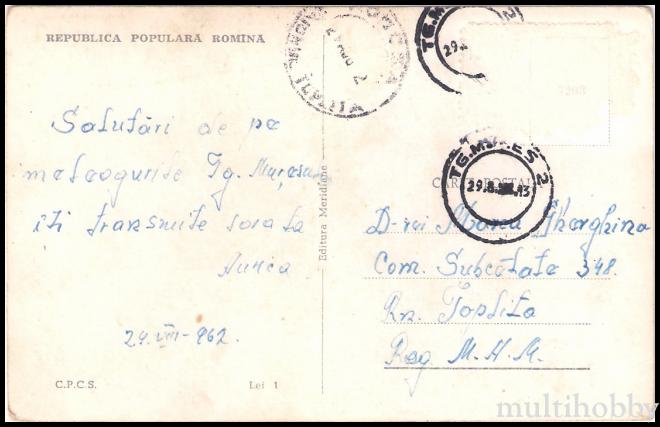 REPUBLICA POPULARĂ ROMÎNĂ
Salutări de pe
meleagurile Tg. Mureșului
îți transmite sora ta
Aurica
24.VIII-962.
C.P.C.S.
Lei 1
Editura Meridiane
TOPLIȚA
TG.MUREȘ 2
29.8. 13
TG.M
2
29.
7203
CARTE POSTALA
D-rei Maria Gherghina
Com. Subcetate 348.
Rn. Toplița
Reg. M.A.M.
multihobby